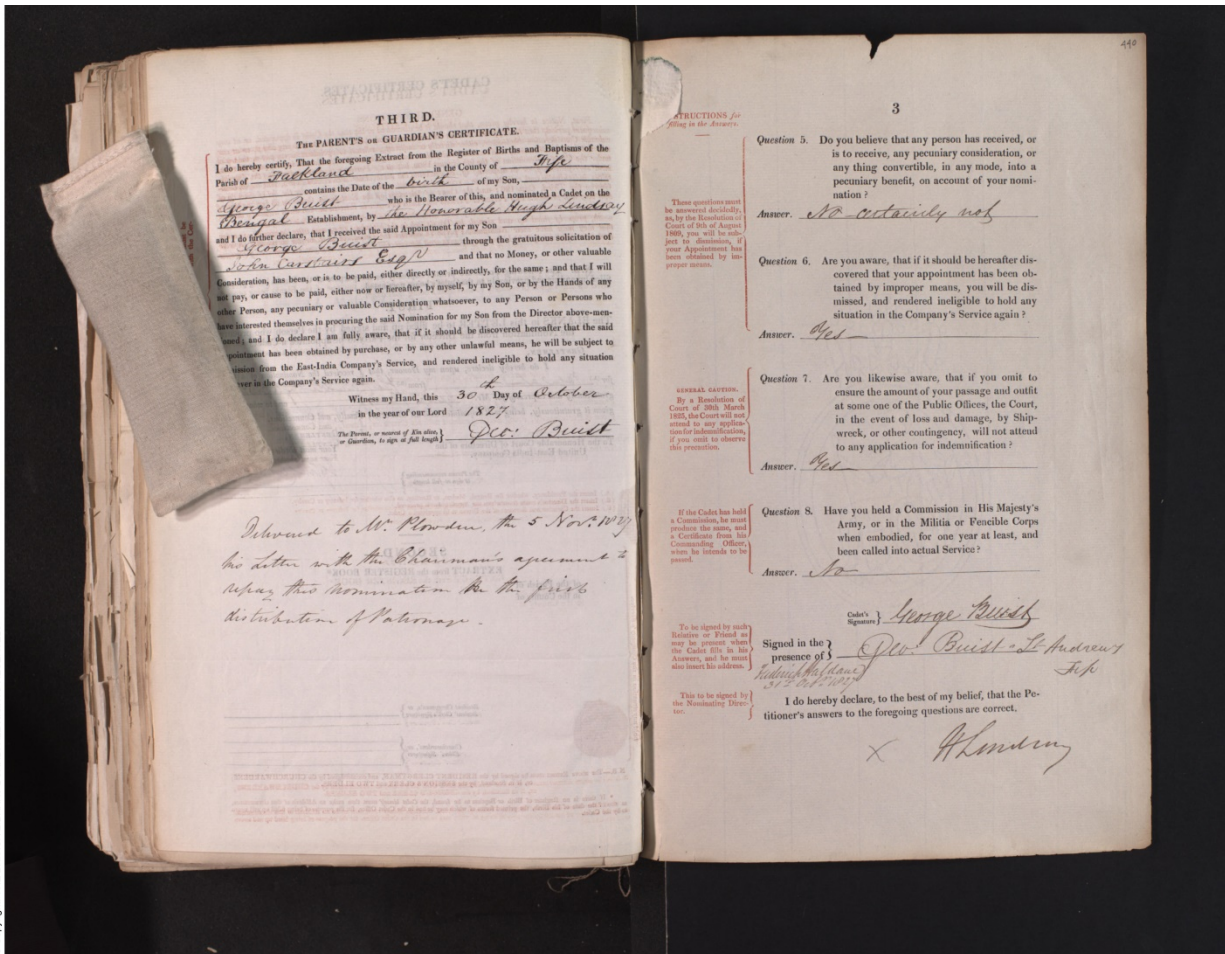 THIRD.
THE PARENT'S OR GUARDIAN'S CERTIFICATE.
I do hereby certify, That the foregoing Extract from the Register of Births and Baptisms of the
Parish of Falkland in the County of Fife
contains the Date of the birth of my Son,
George Buist who is the Bearer of this, and nominated a Cadet on the
Bengal Establishment, by the Honorable Hugh Lindsay
and I do further declare, that I received the said Appointment for my Son
George Buist through the gratuitous solicitation of
John Carstairs Esqr and that no Money, or other valuable
Consideration, has been, or is to be paid, either directly or indirectly, for the same; and that I will
not pay, or cause to be paid, either now or hereafter, by myself, by my Son, or by the Hands of any
other Person, any pecuniary or valuable Consideration whatsoever, to any Person or Persons who
have interested themselves in procuring the said Nomination for my Son from the Director above-men-
oned; and I do declare I am fully aware, that if it should be discovered hereafter that the said
pointment has been obtained by purchase, or by any other unlawful means, he will be subject to
mission from the East-India Company's Service, and rendered ineligible to hold any situation
ver in the Company's Service again.
Witness my Hand, this 30th Day of October
in the year of our Lord 1827
The Parent, or nearest of Kin alive,
or Guardian, to sign at full length} Geo: Buist
Delivered to Mr. Plowden, the 5 Novr. 1827
his Letter with the Chairman's agreement to
repay this nomination in the first
distribution of Patronage.
440
3
STRUCTIONS for
filling in the Answers.
Question 5. Do you believe that any person has received, or
is to receive, any pecuniary consideration, or
any thing convertible, in any mode, into a
pecuniary benefit, on account of your nomi-
nation?
Answer. No certainly not
These questions must
be answered decidedly,
as, by the Resolution of
Court of 9th of August
1809, you will be sub-
ject to dismission, if
your Appointment has
been obtained by im-
proper means.
Question 6. Are you aware, that if it should be hereafter dis-
covered that your appointment has been ob-
tained by improper means, you will be dis-
missed, and rendered ineligible to hold any
situation in the Company's Service again?
Answer. Yes
GENERAL CAUTION.
By a Resolution of
Court of 30th March
1825, the Court will not
attend to any applica-
tion for indemnification,
if you omit to observe
this precaution.
Question 7. Are you likewise aware, that if you omit to
ensure the amount of your passage and outfit
at some one of the Public Offices, the Court,
in the event of loss and damage, by Ship-
wreck, or other contingency, will not attend
to any application for indemnification?
Answer. Yes
If the Cadet has held
a Commission, he must
produce the same, and
a Certificate from his
Commanding Officer,
when he intends to be
passed.
Question 8. Have you held a Commission in His Majesty's
Army, or in the Militia or Fencible Corps
when embodied, for one year at least, and
been called into actual Service?
Answer. No
Cadet's
Signature} George Buist
To be signed by such
Relative or Friend as
may be present when
the Cadet fills in his
Answers, and he must
also insert his address.
Signed in the
presence of} Geo: Buist - St Andrews
Fife
31st Octr 1827
This to be signed by
the Nominating Direc-
tor.
I do hereby declare, to the best of my belief, that the Pe-
titioner's answers to the foregoing questions are correct.
X H Lindsay